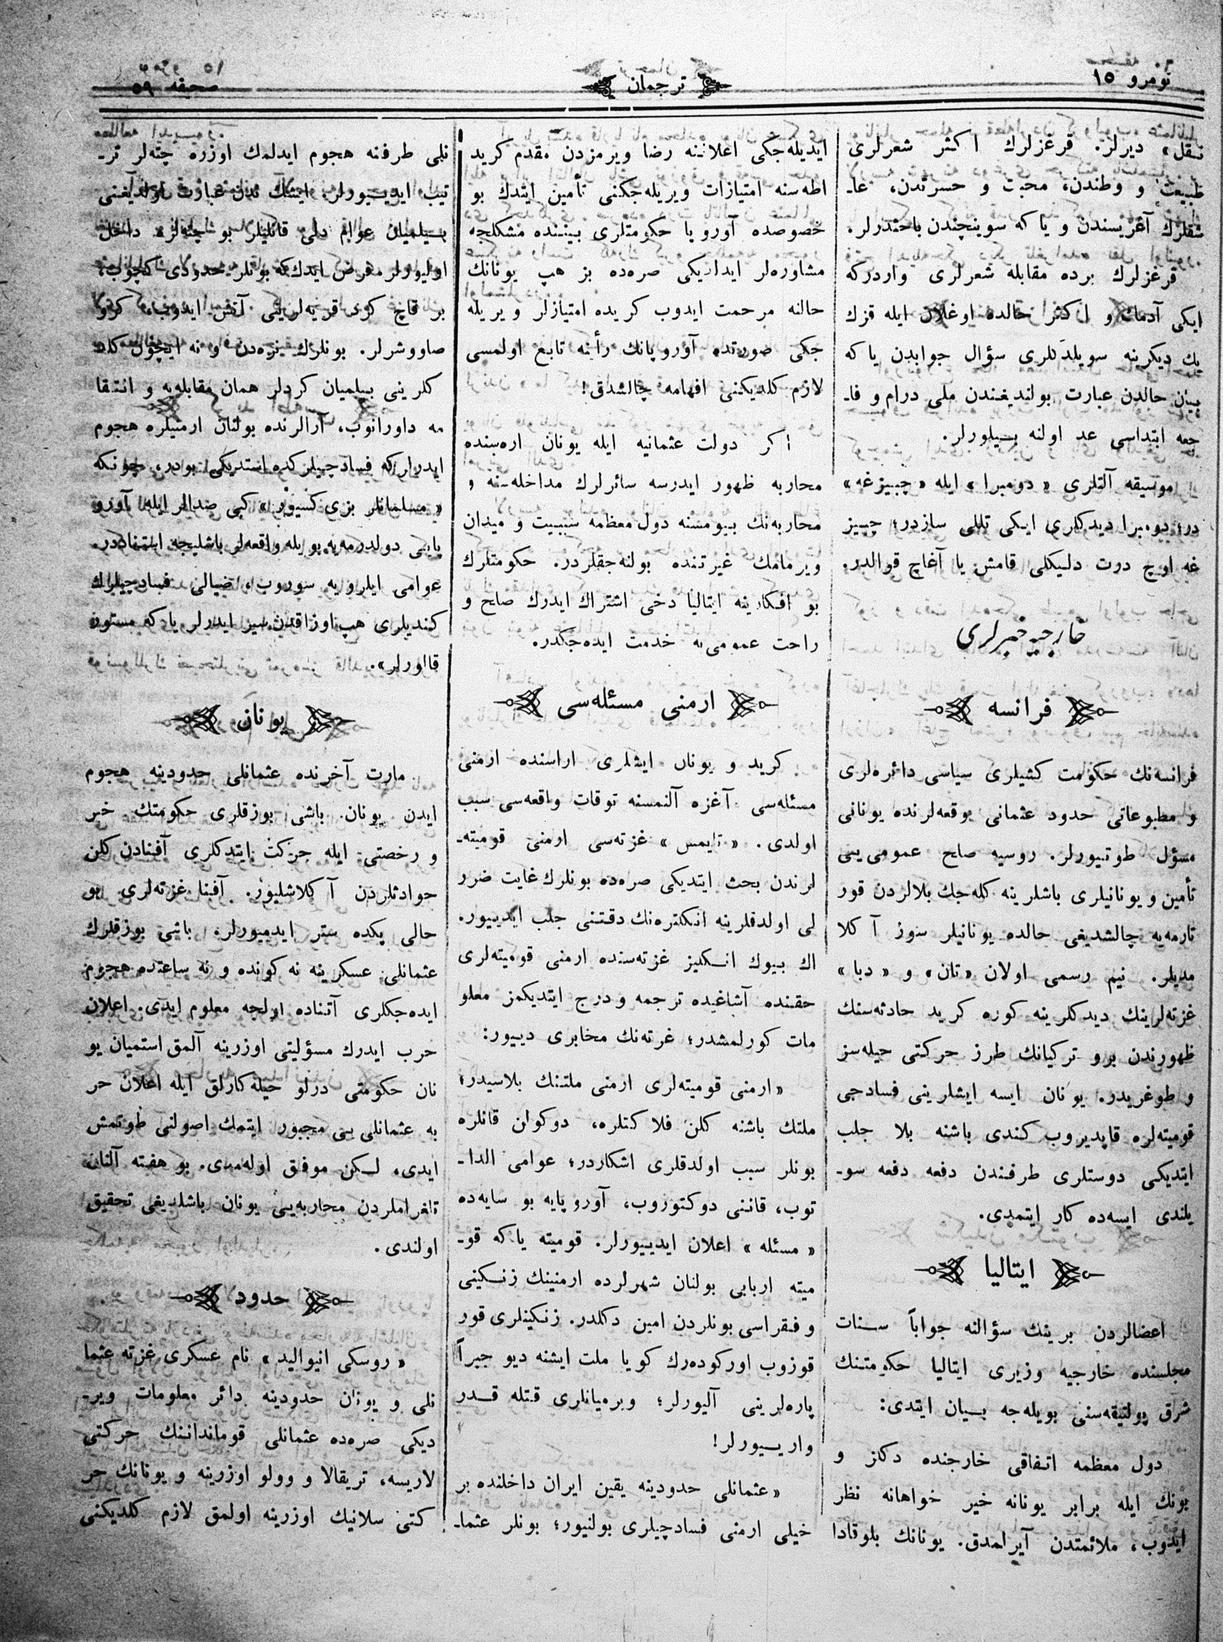 نومرو ١٥
ترجمان
صحيفه ٥٩
نقل» ديرلر. قرغزلرك اكثر شعرلرى
طبيعت و وطندن، محبت و حسرتدن، عا‍ـ
شقلرك آغريسندن و ياكه سوينچندن باحثدرلر.
قرغزلرك برده مقابله شعرلرى واردركه
ايكى آدمك و اكثر حالده اوغلان ايله قزك
يك ديكرينه سويلدكلرى سؤال جوابدن ياكه
بيان حالدن عبارت بولنديغندن ملى درام و فا‍ـ
جعه ابتداسى عد اولنه بيلورلر.
موسيقه آلتلرى «دومبرا» ايله «چبيزغه»
در؛ دومبرا ديدكلرى ايكى تللى سازدر؛ چبيز
غه اوچ درت دليكلى قامش يا آغاچ قوالدر.
خارجيه خبرلرى
فرانسه
فرانسه‌نك حكومت كشيلرى سياسى دائره‌لرى
و مطبوعاتى حدود عثمانى وقعه‌لرنده يونانى
مسؤل طوتيورلر. روسيه صلح عمومى‌يى
تأمين و يونانيلرى باشلرينه كله‌جك بلالردن قور
تارمه‌يه چالشديغى حالده يونانيلر سوز آكلا
مديلر. نيم رسمى اولان «تان» و «دبا»
غزته‌لرينك ديدكلرينه كوره كريد حادثه‌سنك
ظهورندن برو تركيانك طرز حركتى حيله‌سز
و طوغريدر. يونان ايسه ايشلرينى فسادجى
قوميته‌لره قاپديروب كندى باشنه بلا جلب
ايتديكى دوستلرى طرفندن دفعه دفعه سو‍ـ
يلندى ايسه‌ده كار ايتمدى.
ايتاليا
اعضالردن برينك سؤالنه جواباً سنات
مجلسنده خارجيه وزيرى ايتاليا حكومتنك
شرق پولتيقه‌سنى بويله‌جه بيان ايتدى:
دول معظمه اتفاقى خارجنده دكلز و
بونك ايله برابر يونانه خير خواهانه نظر
ايدوب، ملائمتدن آيرلمدق. يونانك بلوقادا
ايديله‌جكى اعلانينه رضا ويرمزدن مقدم كريد
اطه‌سنه امتيازات ويريله‌جكنى تأمين ايتدك بو
خصوصده آوروپا حكومتلرى بيننده مشكلجه
مشاوره‌لر ايداديكى صره‌ده بز هپ يونانك
حالنه مرحمت ايدوب كريده امتيازلر ويريله
جكى صورتده آوروپانك رأينه تابع اولمسى
لازم كلديكنى افهامه چالشدق!
اكر دولت عثمانيه ايله يونان اره‌سنده
محاربه ظهور ايدرسه سائرلرك مداخله‌سنه و
محاربه‌نك بيومسنه دول معظمه سببيت و ميدان
ويرمامك غيرتنده بولنه‌جقلردر. حكومتلرك
بو افكارينه ايتاليا دخى اشتراك ايدرك صلح و
راحت عمومى‌يه خدمت ايده‌جكدر.
ارمنى مسئله‌سى
كريد و يونان ايشلرى اراسنده ارمنى
مسئله‌سى آغزه آلنمسنه توقات واقعه‌سى سبب
اولدى. «تايمس» غزته‌سى ارمنى قوميته‍ـ
لرندن بحث ايتديكى صره‌ده بونلرك غايت ضرر
لى اولدقلرينه انكلتره‌نك دقتنى جلب ايدييور.
اك بيوك انكليز غزته‌سنده ارمنى قوميته‌لرى
حقنده آشاغيده ترجمه و درج ايتديكمز معلو
مات كورلمشدر؛ غزته‌نك مخابرى دييور:
«ارمنى قوميته‌لرى ارمنى ملتنك بلاسيدر؛
ملتك باشنه كلن فلاكتلره، دوكولن قانلره
بونلر سبب اولدقلرى اشكاردر؛ عوامى الدا‍ـ
توب، قاننى دوكتوروب، آوروپايه بو سايه‌ده
«مسئله» اعلان ايدييورلر. قوميته ياكه قو‍ـ
ميته اربابى بولنان شهرلرده ارمنينك زنكينى
و فقراسى بونلردن امين دكلدر. زنكينلرى قور
قوزوب اوركوده‌رك كويا ملت ايشنه ديو جبراً
پاره‌لرينى آليورلر؛ ويرميانلرى قتله قدر
وارييورلر!
«عثمانلى حدودينه يقين ايران داخلنده بر
خيلى ارمنى فسادچيلرى بولنيور؛ بونلر عثما‍ـ
نلى طرفنه هجوم ايدلمك اوزره چته‌لر تر‍ـ
تيب ايدييورلر، ايشك ندن عبارت اولديغنى
بيلميان عوام دلى قانليلر بو چته‌لره داخل
اوليورلر. فرض ايدك‌كه بونلر حدودى كچوب،
بر قاچ كرد قريه‌لرينى آتش ايدوب، كرو
صاووشرلر. بونلرك نره‌دن و نه ايچون كلد
كلرينى بيلميان كردلر همان مقابله‌يه و انتقا
مه داورانوب، آرالرنده بولنان ارمنيلره هجوم
ايدرلركه فسادچيلركده استديكى بودر، چونكه
«مسلمانلر بزى كسيور» كبى صدالر ايله آورو
پايى دولدرمه‌يه بويله واقعه‌لر باشليجه استناددر.
عوامى ايلرويه سوروب، اضيالى فسادچيلرك
كنديلرى هپ اوزاقدن سير ايدرلر ياكه مستور
قالورلر».
يونان
مارت آخرنده عثمانلى حدودينه هجوم
ايدن يونان. باشى بوزقلرى حكومتك خبر
و رخصتى ايله حركت ايتدكلرى آفينادن كلن
حوادثلردن آكلاشليور. آفينا غزته‌لرى بو
حالى پكده ستر ايدميورلر. باشى بوزقلرك
عثمانلى عسكرينه نه كونده و نه ساعتده هجوم
ايده‌جكلرى آتناده اولجه معلوم ايدى. اعلان
حرب ايدرك مسؤليتى اوزرينه آلمق استميان يو
نان حكومتى درلو حيله‌كارلق ايله اعلان حر
به عثمانلى‌يى مجبور ايتمك اصولنى طوتمش
ايدى، لكن موفق اوله‌مدى. بو هفته آلنان
تلغراملردن محاربه‌يى يونان باشلديغى تحقيق
اولندى.
حدود
«روسكى انيواليد» نام عسكرى غزته عثما
نلى و يونان حدودينه دائر معلومات وير‍ـ
ديكى صره‌ده عثمانلى قوماندانينك حركتى
لاريسه، تريقالا و وولو اوزرينه و يونانك حر
كتى سلانيك اوزرينه اولمق لازم كلديكنى